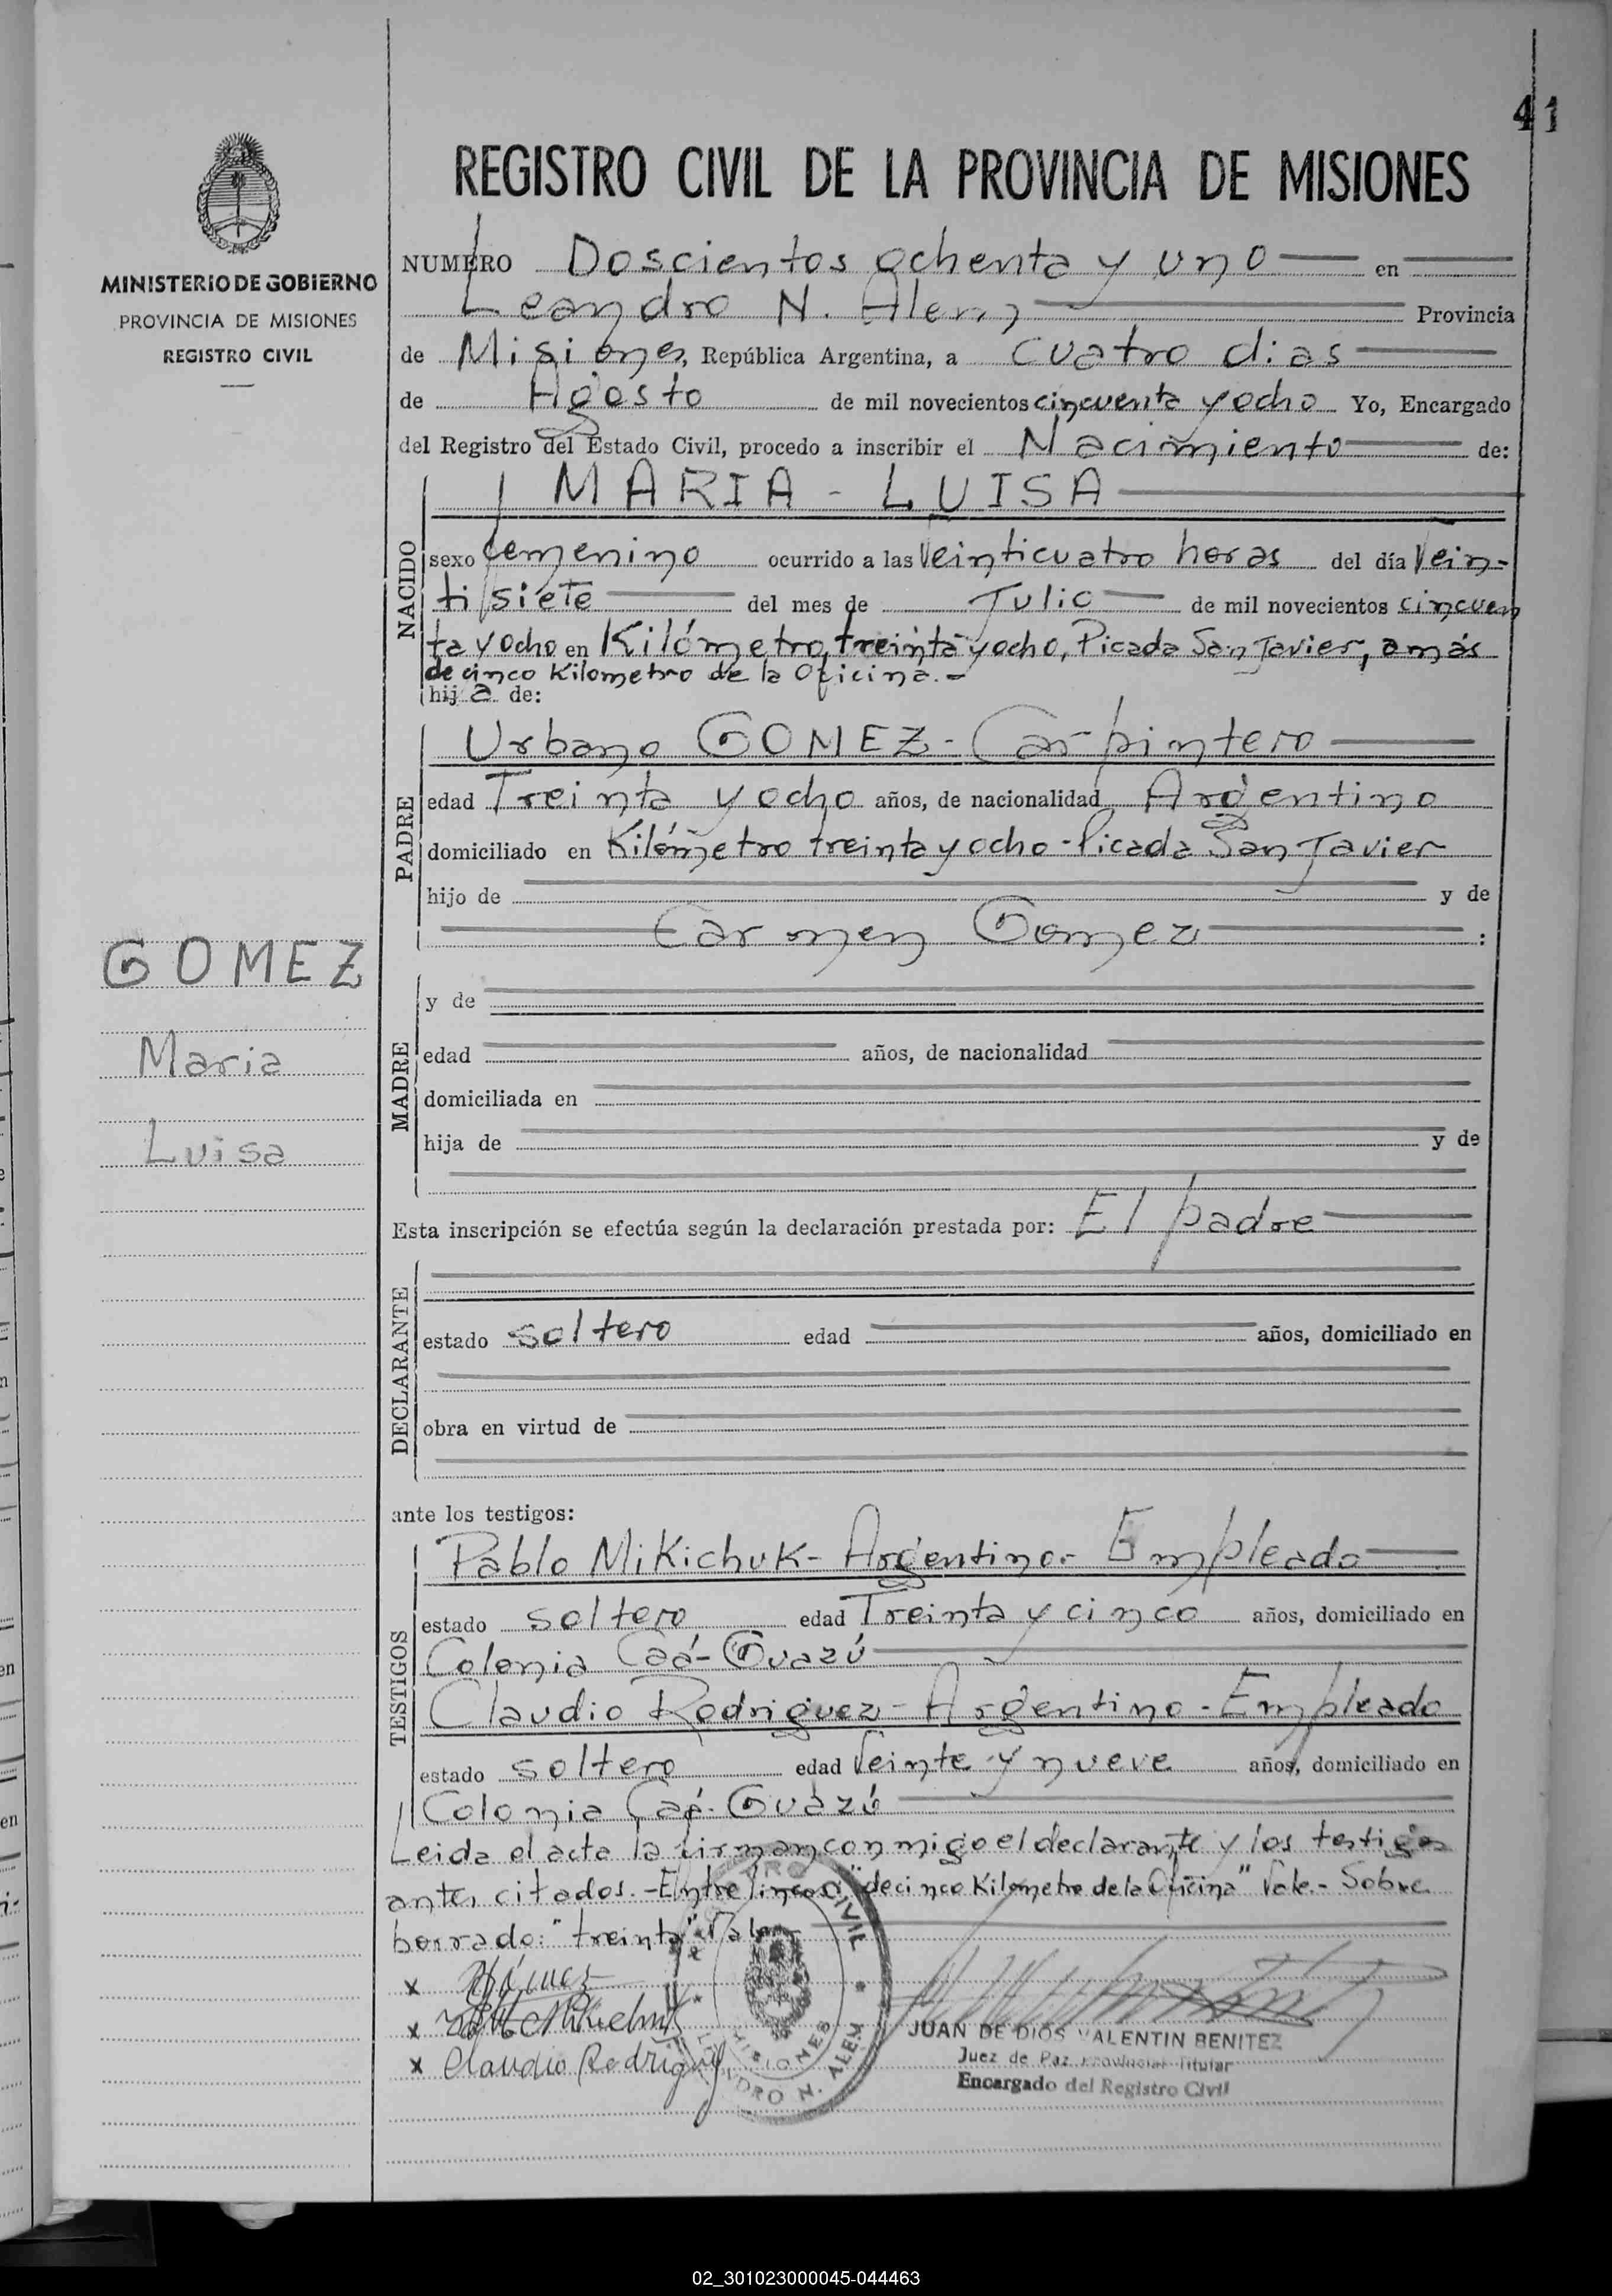 41
REGISTRO CIVIL DE LA PROVINCIA DE MISIONES
MINISTERIO DE GOBIERNO
PROVINCIA DE MISIONES
REGISTRO CIVIL
NUMERO Doscientos ochenta y uno en
Leandro N. Alem Provincia
de Misiones, República Argentina, a cuatro dias
de Agosto de mil novecientos cincuenta y ocho Yo, Encargado
del Registro del Estado Civil, procedo a inscribir el Nacimiento de:
NACIDO
MARIA - LUISA
sexo femenino ocurrido a las Veinticuatro horas del día Vein-
ti siete del mes de Julio de mil novecientos cincuen
ta y ocho en Kilómetro treinta y ocho, Picada San Javier, a más
de cinco Kilometro de la Oficina.-
hija de:
PADRE
Urbano GOMEZ - Carpintero
edad Treinta y ocho años, de nacionalidad Argentino
domiciliado en Kilómetro treinta y ocho - Picada San Javier
hijo de y de
Carmen Gomez :
GOMEZ
Maria
Luisa
MADRE
y de
edad años, de nacionalidad
domiciliada en
hija de y de
Esta inscripción se efectúa según la declaración prestada por: El padre
DECLARANTE
estado soltero edad años, domiciliado en
obra en virtud de
ante los testigos:
TESTIGOS
Pablo Mikichuk - Argentino - Empleado
estado soltero edad Treinta y cinco años, domiciliado en
Colonia Caá-Guazú
Claudio Rodriguez - Argentino - Empleado
estado soltero edad Veinte y nueve años, domiciliado en
Colonia Caá-Guazú
Leida el acta la firman conmigo el declarante y los testigos
antes citados.- Entre lineas: "de cinco Kilometro de la Oficina" Vale.- Sobre
borrado: "treinta" Vale
x Gómez
x
x Claudio Rodriguez
CIVIL
MISIONES
LEANDRO N. ALEM
JUAN DE DIOS VALENTIN BENITEZ
Juez de Paz Provincial Titular
Encargado del Registro Civil
02_301023000045-044463